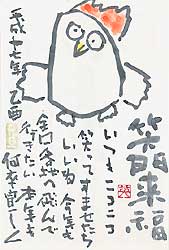 笑門来福
いつもニコニコ
笑ってすませたら
いいね 今年も
全国各地へ飛んで
行きたい
平成十七年 乙酉